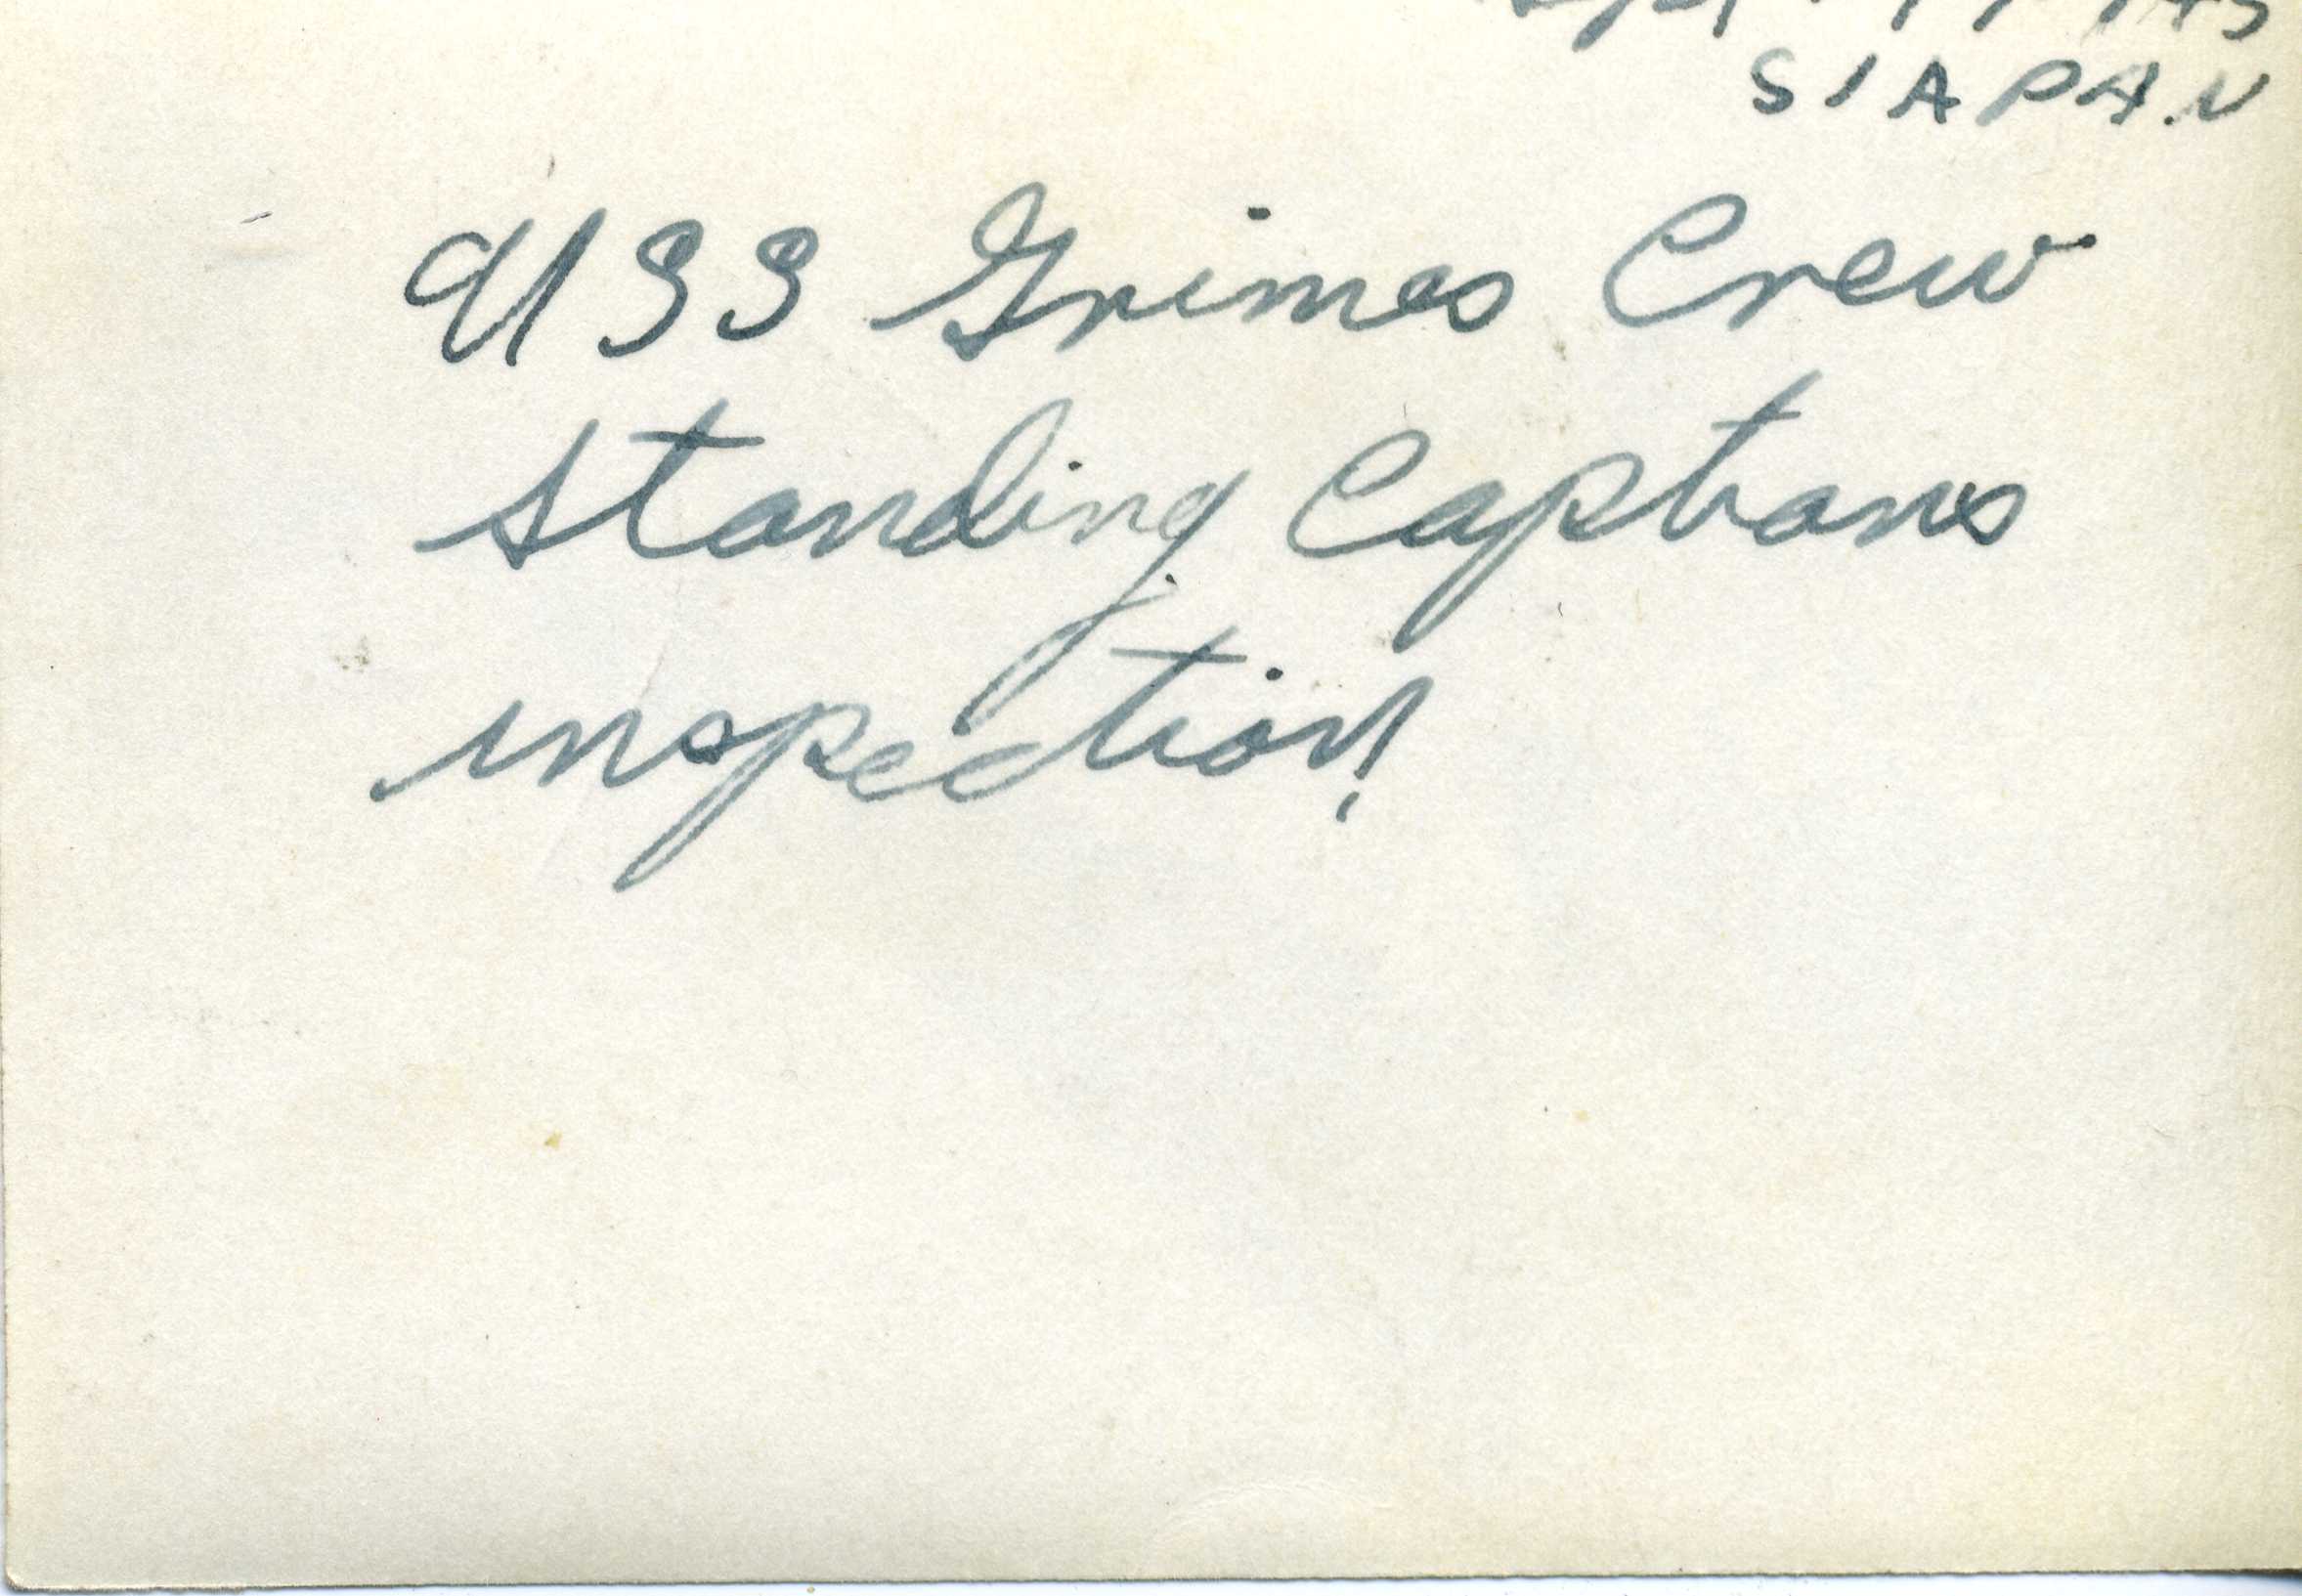 SIAPAN
USS Grimes Crew
standing Captans
inspection!